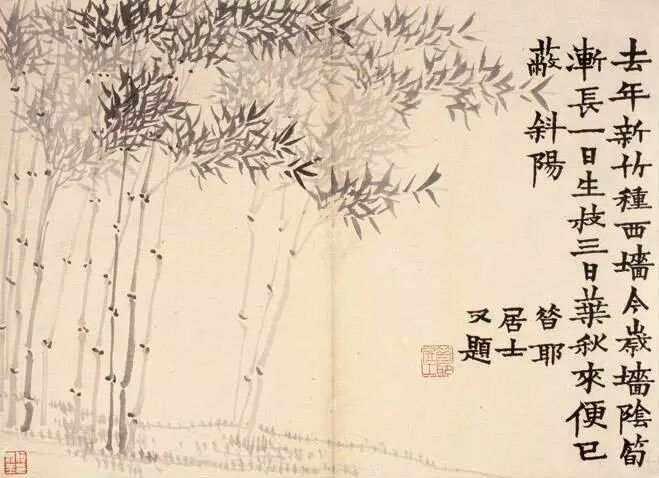 去年新竹種西墻今歲墻陰筍
漸長一日生枝三日葉秋來便已
蔽斜陽
昝耶
居士
又題